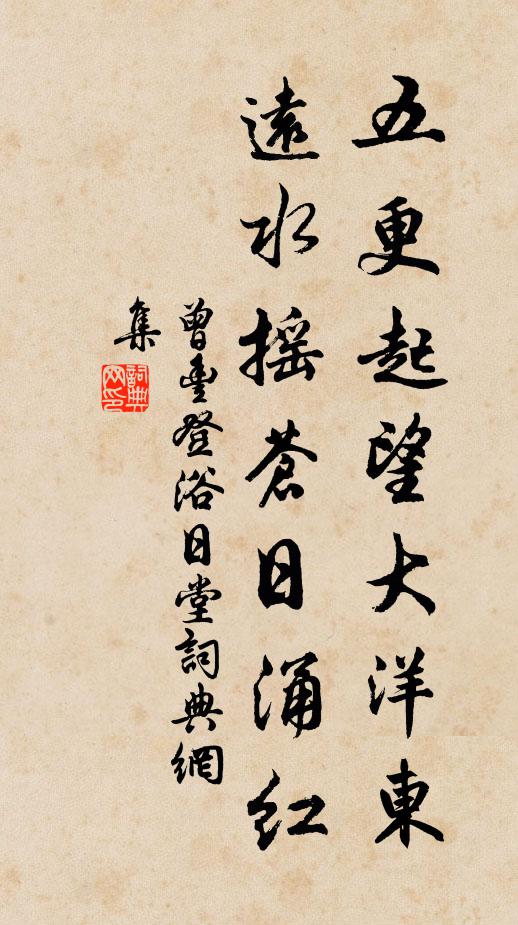 五更起望大洋東
遠水摇蒼日涌红
曾豐登浴日堂詞典網
集
詞典網印